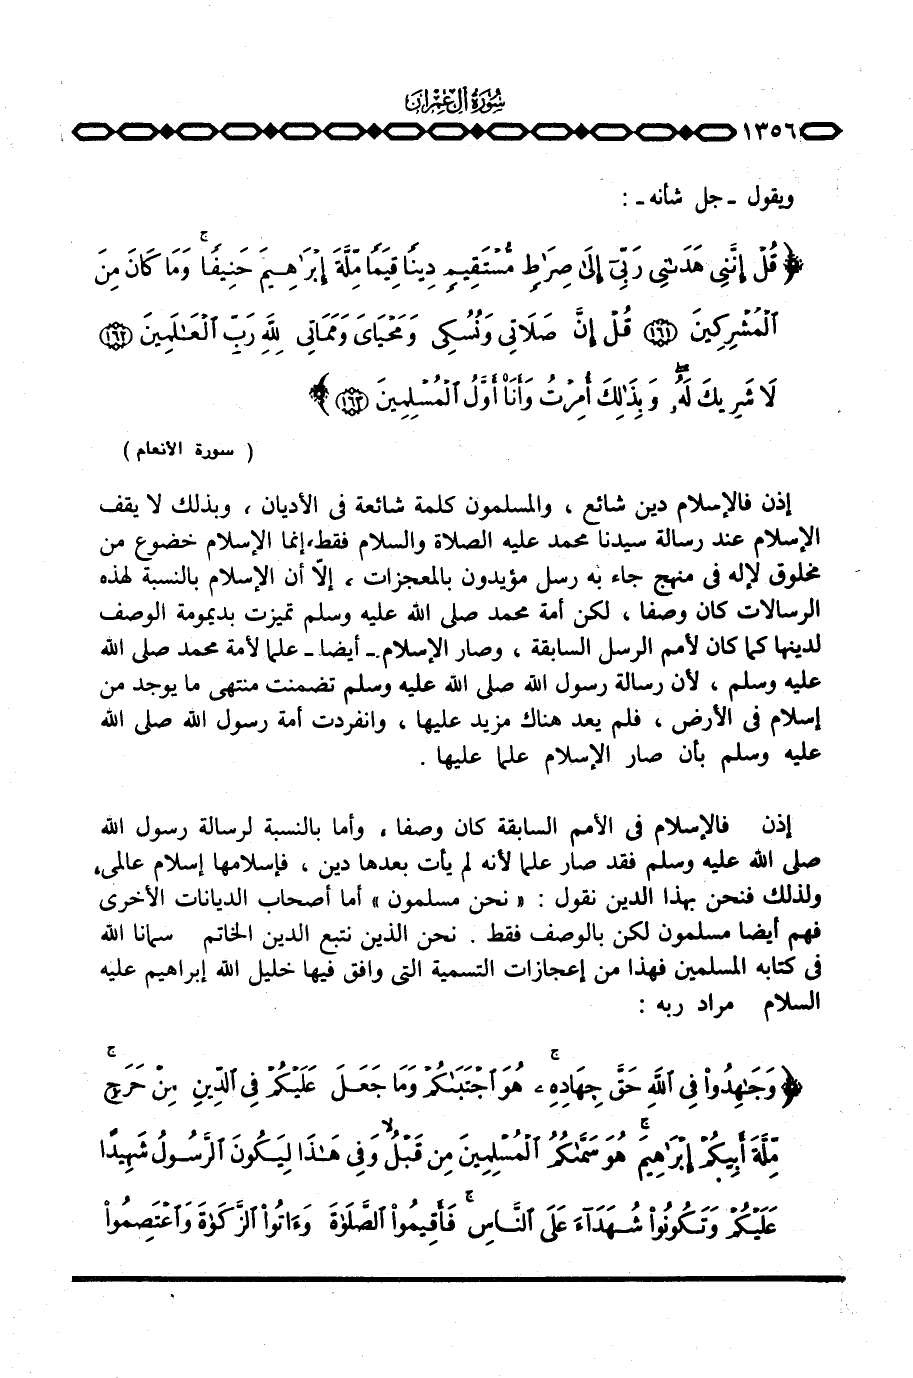 سُورَةُ آلِ عِمْرَانَ
١٣٥٦
ويقول ـ جل شأنه ـ :
﴿ قُلْ إِنَّنِي هَدَىٰنِي رَبِّيٓ إِلَىٰ صِرَٰطٍ مُّسْتَقِيمٍ دِينًا قِيَمًا مِّلَّةَ إِبْرَٰهِيمَ حَنِيفًا ۚ وَمَا كَانَ مِنَ
ٱلْمُشْرِكِينَ ﴿١٦١﴾ قُلْ إِنَّ صَلَاتِي وَنُسُكِي وَمَحْيَايَ وَمَمَاتِي لِلَّهِ رَبِّ ٱلْعَٰلَمِينَ ﴿١٦٢﴾
لَا شَرِيكَ لَهُۥ ۖ وَبِذَٰلِكَ أُمِرْتُ وَأَنَا۠ أَوَّلُ ٱلْمُسْلِمِينَ ﴿١٦٣﴾ ﴾
( سورة الأنعام )
إذن فالإسلام دين شائع ، والمسلمون كلمة شائعة فى الأديان ، وبذلك لا يقف
الإسلام عند رسالة سيدنا محمد عليه الصلاة والسلام فقط،إنما الإسلام خضوع من
مخلوق لإله فى منهج جاء به رسل مؤيدون بالمعجزات ، إلّا أن الإسلام بالنسبة لهذه
الرسالات كان وصفا ، لكن أمة محمد صلى الله عليه وسلم تميزت بديمومة الوصف
لدينها كما كان لأمم الرسل السابقة ، وصار الإسلام ـ أيضا ـ علما لأمة محمد صلى الله
عليه وسلم ، لأن رسالة رسول الله صلى الله عليه وسلم تضمنت منتهى ما يوجد من
إسلام فى الأرض ، فلم يعد هناك مزيد عليها ، وانفردت أمة رسول الله صلى الله
عليه وسلم بأن صار الإسلام علما عليها .
إذن فالإسلام فى الأمم السابقة كان وصفا ، وأما بالنسبة لرسالة رسول الله
صلى الله عليه وسلم فقد صار علما لأنه لم يأت بعدها دين ، فإسلامها إسلام عالمى،
ولذلك فنحن بهذا الدين نقول : « نحن مسلمون » أما أصحاب الديانات الأخرى
فهم أيضا مسلمون لكن بالوصف فقط . نحن الذين نتبع الدين الخاتم سمانا الله
فى كتابه المسلمين فهذا من إعجازات التسمية التى وافق فيها خليل الله إبراهيم عليه
السلام مراد ربه :
﴿ وَجَٰهِدُوا۟ فِي ٱللَّهِ حَقَّ جِهَادِهِۦ ۚ هُوَ ٱجْتَبَىٰكُمْ وَمَا جَعَلَ عَلَيْكُمْ فِي ٱلدِّينِ مِنْ حَرَجٍ ۚ
مِّلَّةَ أَبِيكُمْ إِبْرَٰهِيمَ ۚ هُوَ سَمَّىٰكُمُ ٱلْمُسْلِمِينَ مِن قَبْلُ وَفِي هَٰذَا لِيَكُونَ ٱلرَّسُولُ شَهِيدًا
عَلَيْكُمْ وَتَكُونُوا۟ شُهَدَآءَ عَلَى ٱلنَّاسِ ۚ فَأَقِيمُوا۟ ٱلصَّلَوٰةَ وَءَاتُوا۟ ٱلزَّكَوٰةَ وَٱعْتَصِمُوا۟